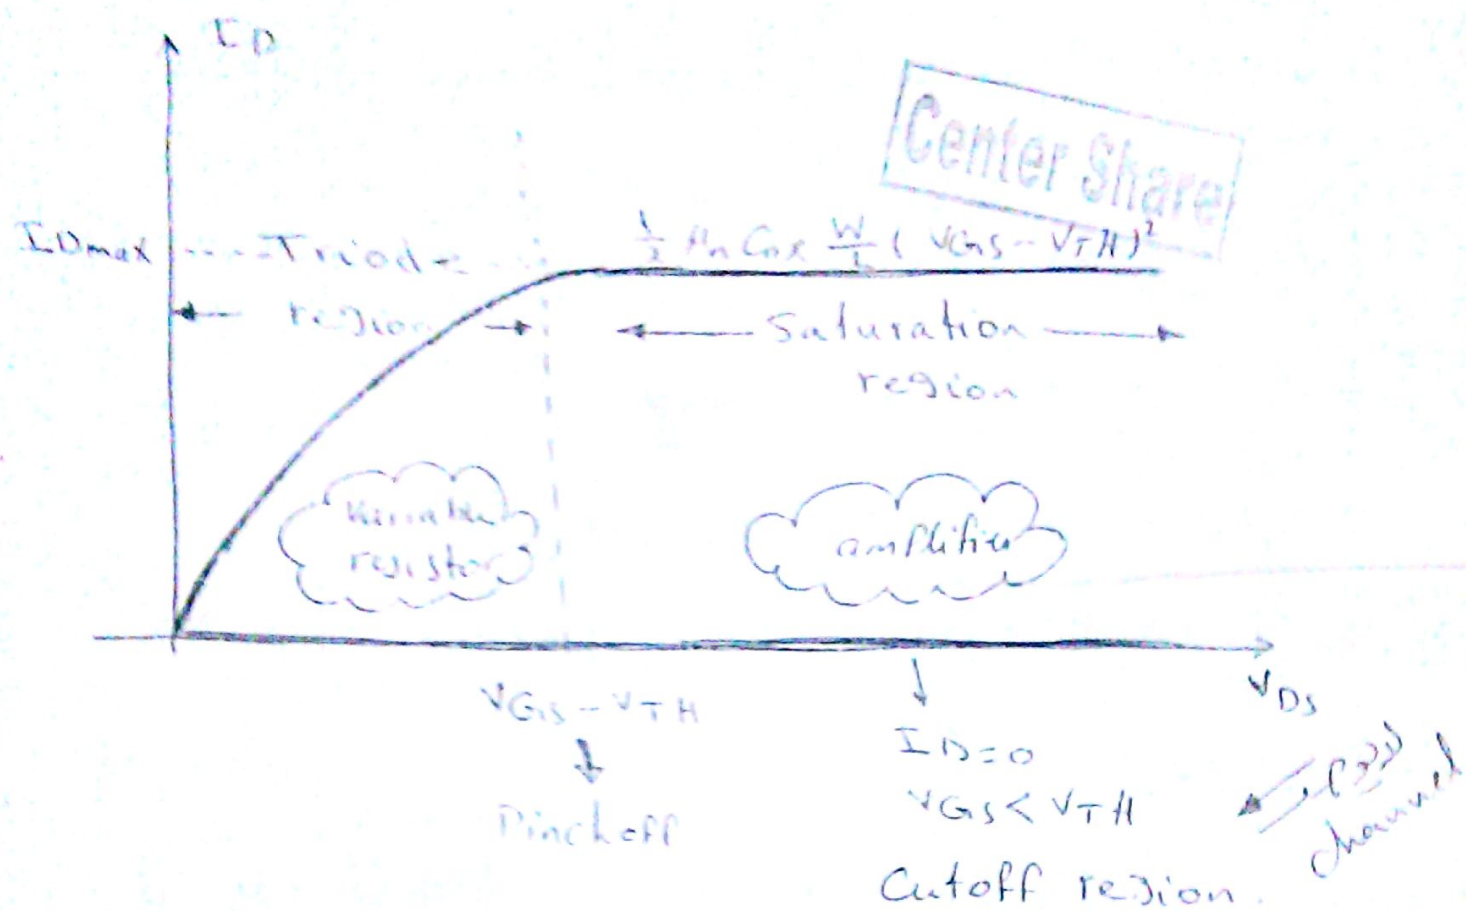 ID
Center Share
IDmax
Triode
region
1/2 μn Cox W/L (VGS - VTH)²
Saturation
region
variable
resistor
amplifier
VGS - VTH
Pinchoff
VDS
ID=0
VGS < VTH
Cutoff region.
channel